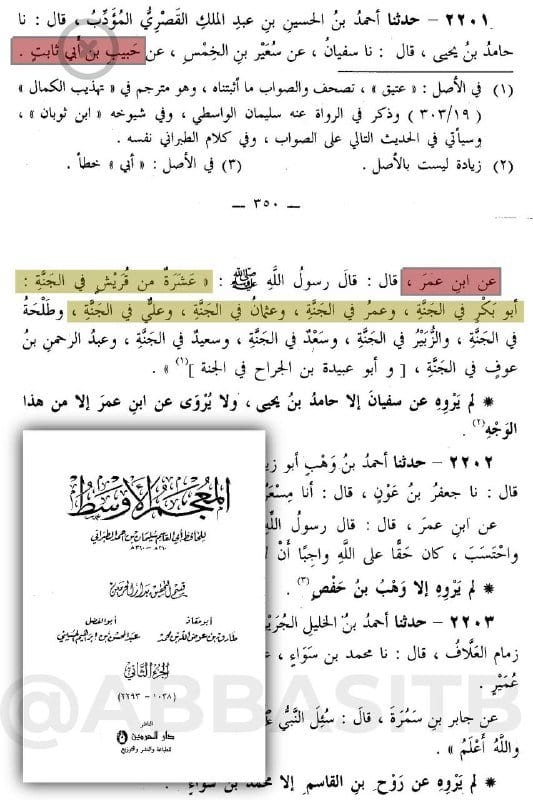 ٢٢٠١ – حدثنا أحمدُ بنُ الحسينِ بنِ عبدِ الملكِ القَصْرِيُّ المُؤَدِّبُ ، قال : نا
حامدُ بنُ يحيى ، قال : نا سفيانُ ، عن سُعَيْرِ بنِ الخِمْسِ ، عن حَبيبِ بنِ أبي ثابتٍ .
(١) في الأصل : « عتيق » ، تصحف والصواب ما أثبتناه ، وهو مترجم في « تهذيب الكمال »
( ٣٠٣/١٩ ) وذكر في الرواة عنه سليمان الواسطي ، وفي شيوخه « ابن ثوبان » ،
وسيأتي في الحديث التالي على الصواب ، وفي كلام الطبراني نفسه .
(٢) زيادة ليست بالأصل . (٣) في الأصل : « أبي » خطأ .
— ٣٥٠ —
عن ابنِ عمرَ ، قال : قال رسولُ اللَّهِ ﷺ : « عَشَرَةٌ من قُرَيْشٍ في الجَنَّةِ :
أبو بَكْرٍ في الجَنَّةِ ، وعمرُ في الجَنَّةِ ، وعثمانُ في الجَنَّةِ ، وعليٌّ في الجَنَّةِ ، وطَلْحَةُ
في الجَنَّةِ ، والزُّبَيْرُ في الجَنَّةِ ، وسَعْدٌ في الجَنَّةِ ، وسعيدٌ في الجَنَّةِ ، وعبدُ الرحمنِ بنُ
عوفٍ في الجَنَّةِ ، [ و أبو عبيدة بن الجراح في الجنة ](١) » .
* لم يَرْوِهِ عن سفيانَ إلا حامدُ بنُ يحيى ، ولا يُرْوَى عن ابنِ عمرَ إلا من هذا
الوَجْهِ(٢) .
٢٢٠٢ – حدثنا أحمدُ بنُ وَهْبٍ أبو
قال : نا جعفرُ بنُ عَوْنٍ ، قال : أنا
عن ابنِ عمرَ ، قال : قال رسولُ اللَّهِ
واحْتَسَبَ ، كان حَقًّا على اللَّهِ واجِبًا أَنْ
* لم يَرْوِهِ إلا وَهْبُ بنُ حَفْصٍ(٣) .
٢٢٠٣ – حدثنا أحمدُ بنُ الخليلِ
زمام العَلَّافُ ، قال : نا محمد بن سَوَاءٍ ،
عُمَيْرٍ .
عن جابرِ بنِ سَمُرَةَ ، قال : سُئِلَ النَّبيُّ
واللَّهُ أَعْلَمُ » .
* لم يَرْوِهِ عن رَوْحِ بنِ القاسمِ إلا محمدُ بنُ سَوَاءٍ .
المعجم الأوسط
للحافظ أبي القاسم سليمان بن أحمد الطبراني
٢٦٠ھ – ٣٦٠ھ
قسم التحقيق بدار الحرمين
أبو معاذ
طارق بن عوض الله بن محمد
أبو الفضل
عبد المحسن بن إبراهيم الحسيني
الجزء الثاني
(١٠٣٨ – ٢٢٩٣)
الناشر
دار الحرمين
للطباعة والنشر والتوزيع
@ABBASITB